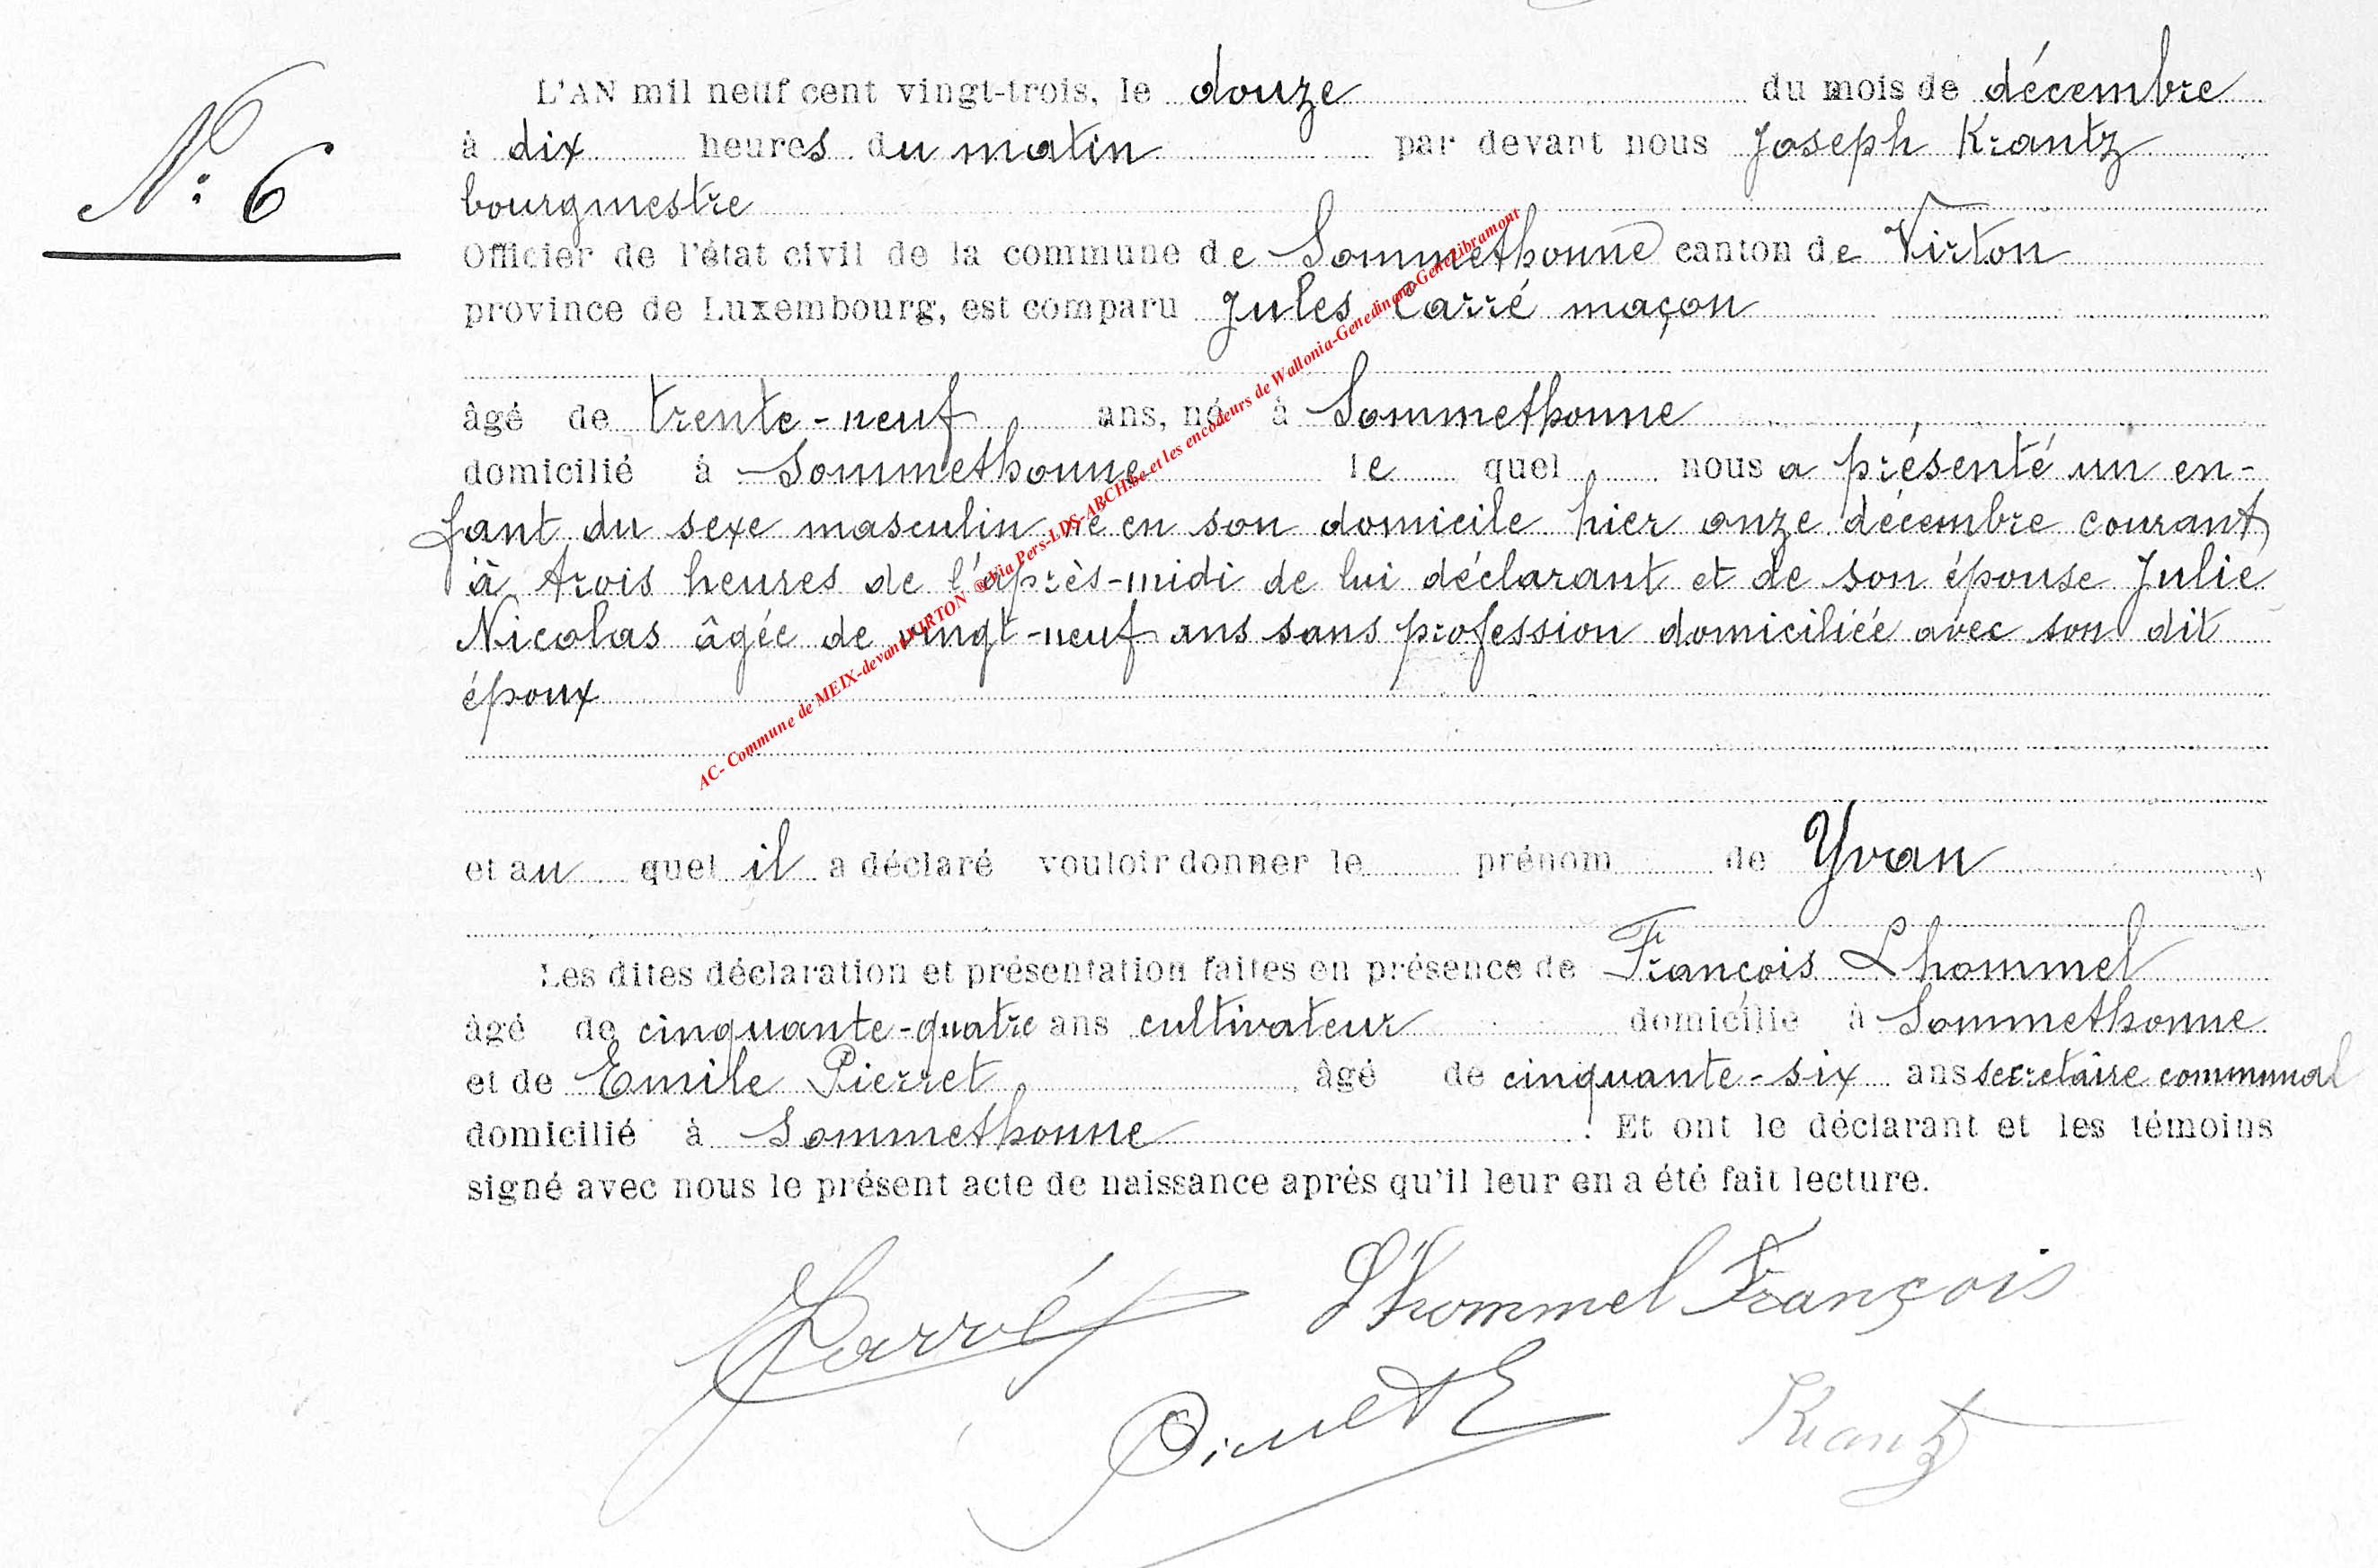 N° 6
L'AN mil neuf cent vingt-trois, le douze du mois de décembre
à dix heures du matin par devant nous Joseph Krantz
bourgmestre
Officier de l'état civil de la commune de Sommethonne canton de Virton
province de Luxembourg, est comparu Jules Carré maçon
âgé de trente-neuf ans, né à Sommethonne
domicilié à Sommethonne le quel nous a présenté un en-
fant du sexe masculin né en son domicile hier onze décembre courant
à trois heures de l'après-midi de lui déclarant et de son épouse Julie
Nicolas âgée de vingt-neuf ans sans profession domiciliée avec son dit
époux
AC- Commune de MEIX-devant-VIRTON ® Via Pers-LDS-ARCH.be et les encodeurs de Wallonia-Genedinant-GeneLibramont
et au quel il a déclaré vouloir donner le prénom de Yvan,
Les dites déclaration et présentation faites en présence de François Lhommel
âgé de cinquante-quatre ans cultivateur domicilié à Sommethonne
et de Emile Pierret, âgé de cinquante-six ans secrétaire communal
domicilié à Sommethonne. Et ont le déclarant et les témoins
signé avec nous le présent acte de naissance après qu'il leur en a été fait lecture.
JCarré L'hommel François
Pierret E Krantz